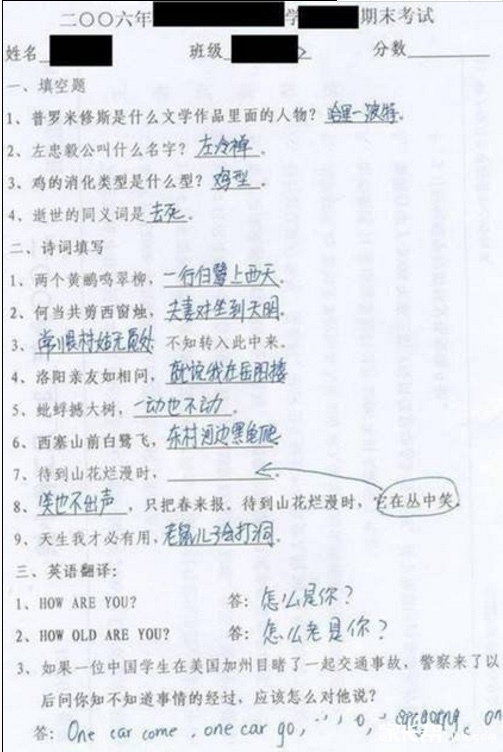 二〇〇六年 学 期末考试
姓名 班级 分数
一、填空题
1、普罗米修斯是什么文学作品里面的人物？哈里一波特。
2、左忠毅公叫什么名字？左冷禅。
3、鸡的消化类型是什么型？鸡型。
4、逝世的同义词是去死。
二、诗词填写
1、两个黄鹂鸣翠柳，一行白鹭上西天。
2、何当共剪西窗烛，夫妻对坐到天明。
3、常恨村姑无觅处 不知转入此中来。
4、洛阳亲友如相问，就说我在岳阳楼
5、蚍蜉撼大树，一动也不动。
6、西塞山前白鹭飞，东村河边黑龟爬
7、待到山花烂漫时，
8、俏也不出声，只把春来报。待到山花烂漫时，它在丛中笑。
9、天生我才必有用，老鼠儿子会打洞。
三、英语翻译：
1、HOW ARE YOU? 答：怎么是你？
2、HOW OLD ARE YOU? 答：怎么老是你？
3、如果一位中国学生在美国加州目睹了一起交通事故，警察来了以
后问你知不知道事情的经过，应该怎么对他说？
答：One car come, one car go,